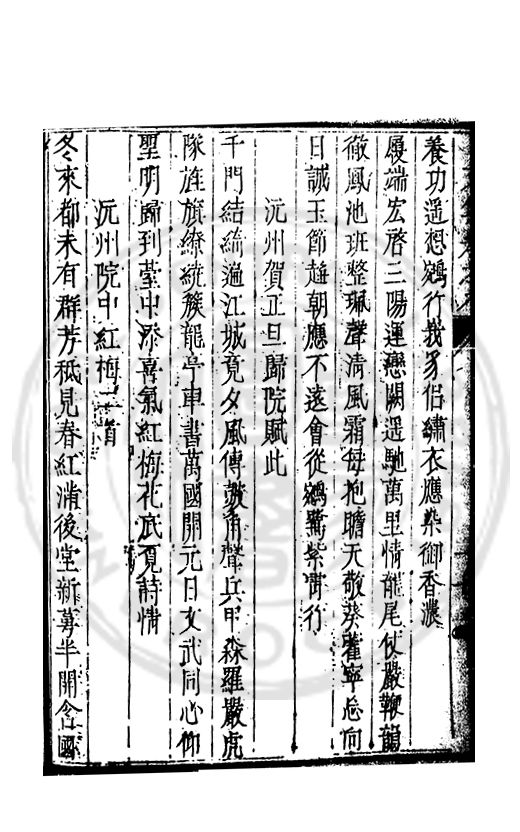 養功遥想鵷行我豸侣繡衣應染御香濃
履端宏啓三陽運戀闕遥馳萬里情龍尾仗嚴鞭龍
徹鳳池班整珮聲清風霜每抱瞻天敬葵藿寧忘向
日誠玉節趍朝應不遠會從鵷鷺紫霄行
沅州賀正旦歸院賦此
千門結綺遍江城竟夕風傳鼓角聲兵甲森羅嚴虎
隊旌旗繚繞簇龍亭車書萬國開元日文武同心仰
聖明歸到臺中添喜氣紅梅花底覓詩情
沅州院中紅梅二首
冬來都未有群芳秪見春紅滿後堂新萼半開含